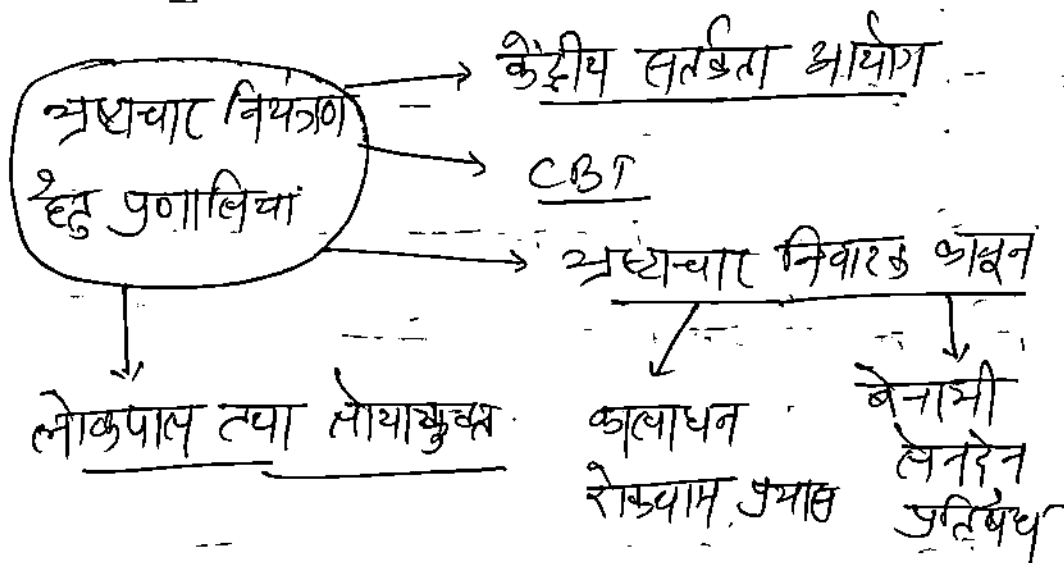 भ्रष्टाचार नियंत्रण
हेतु प्रणालियां
केंद्रीय सतर्कता आयोग
CBI
भ्रष्टाचार निवारक कानून
लोकपाल तथा लोकायुक्त
कालाधन
रोकथाम प्रयास
बेनामी
लेनदेन
प्रतिषेध